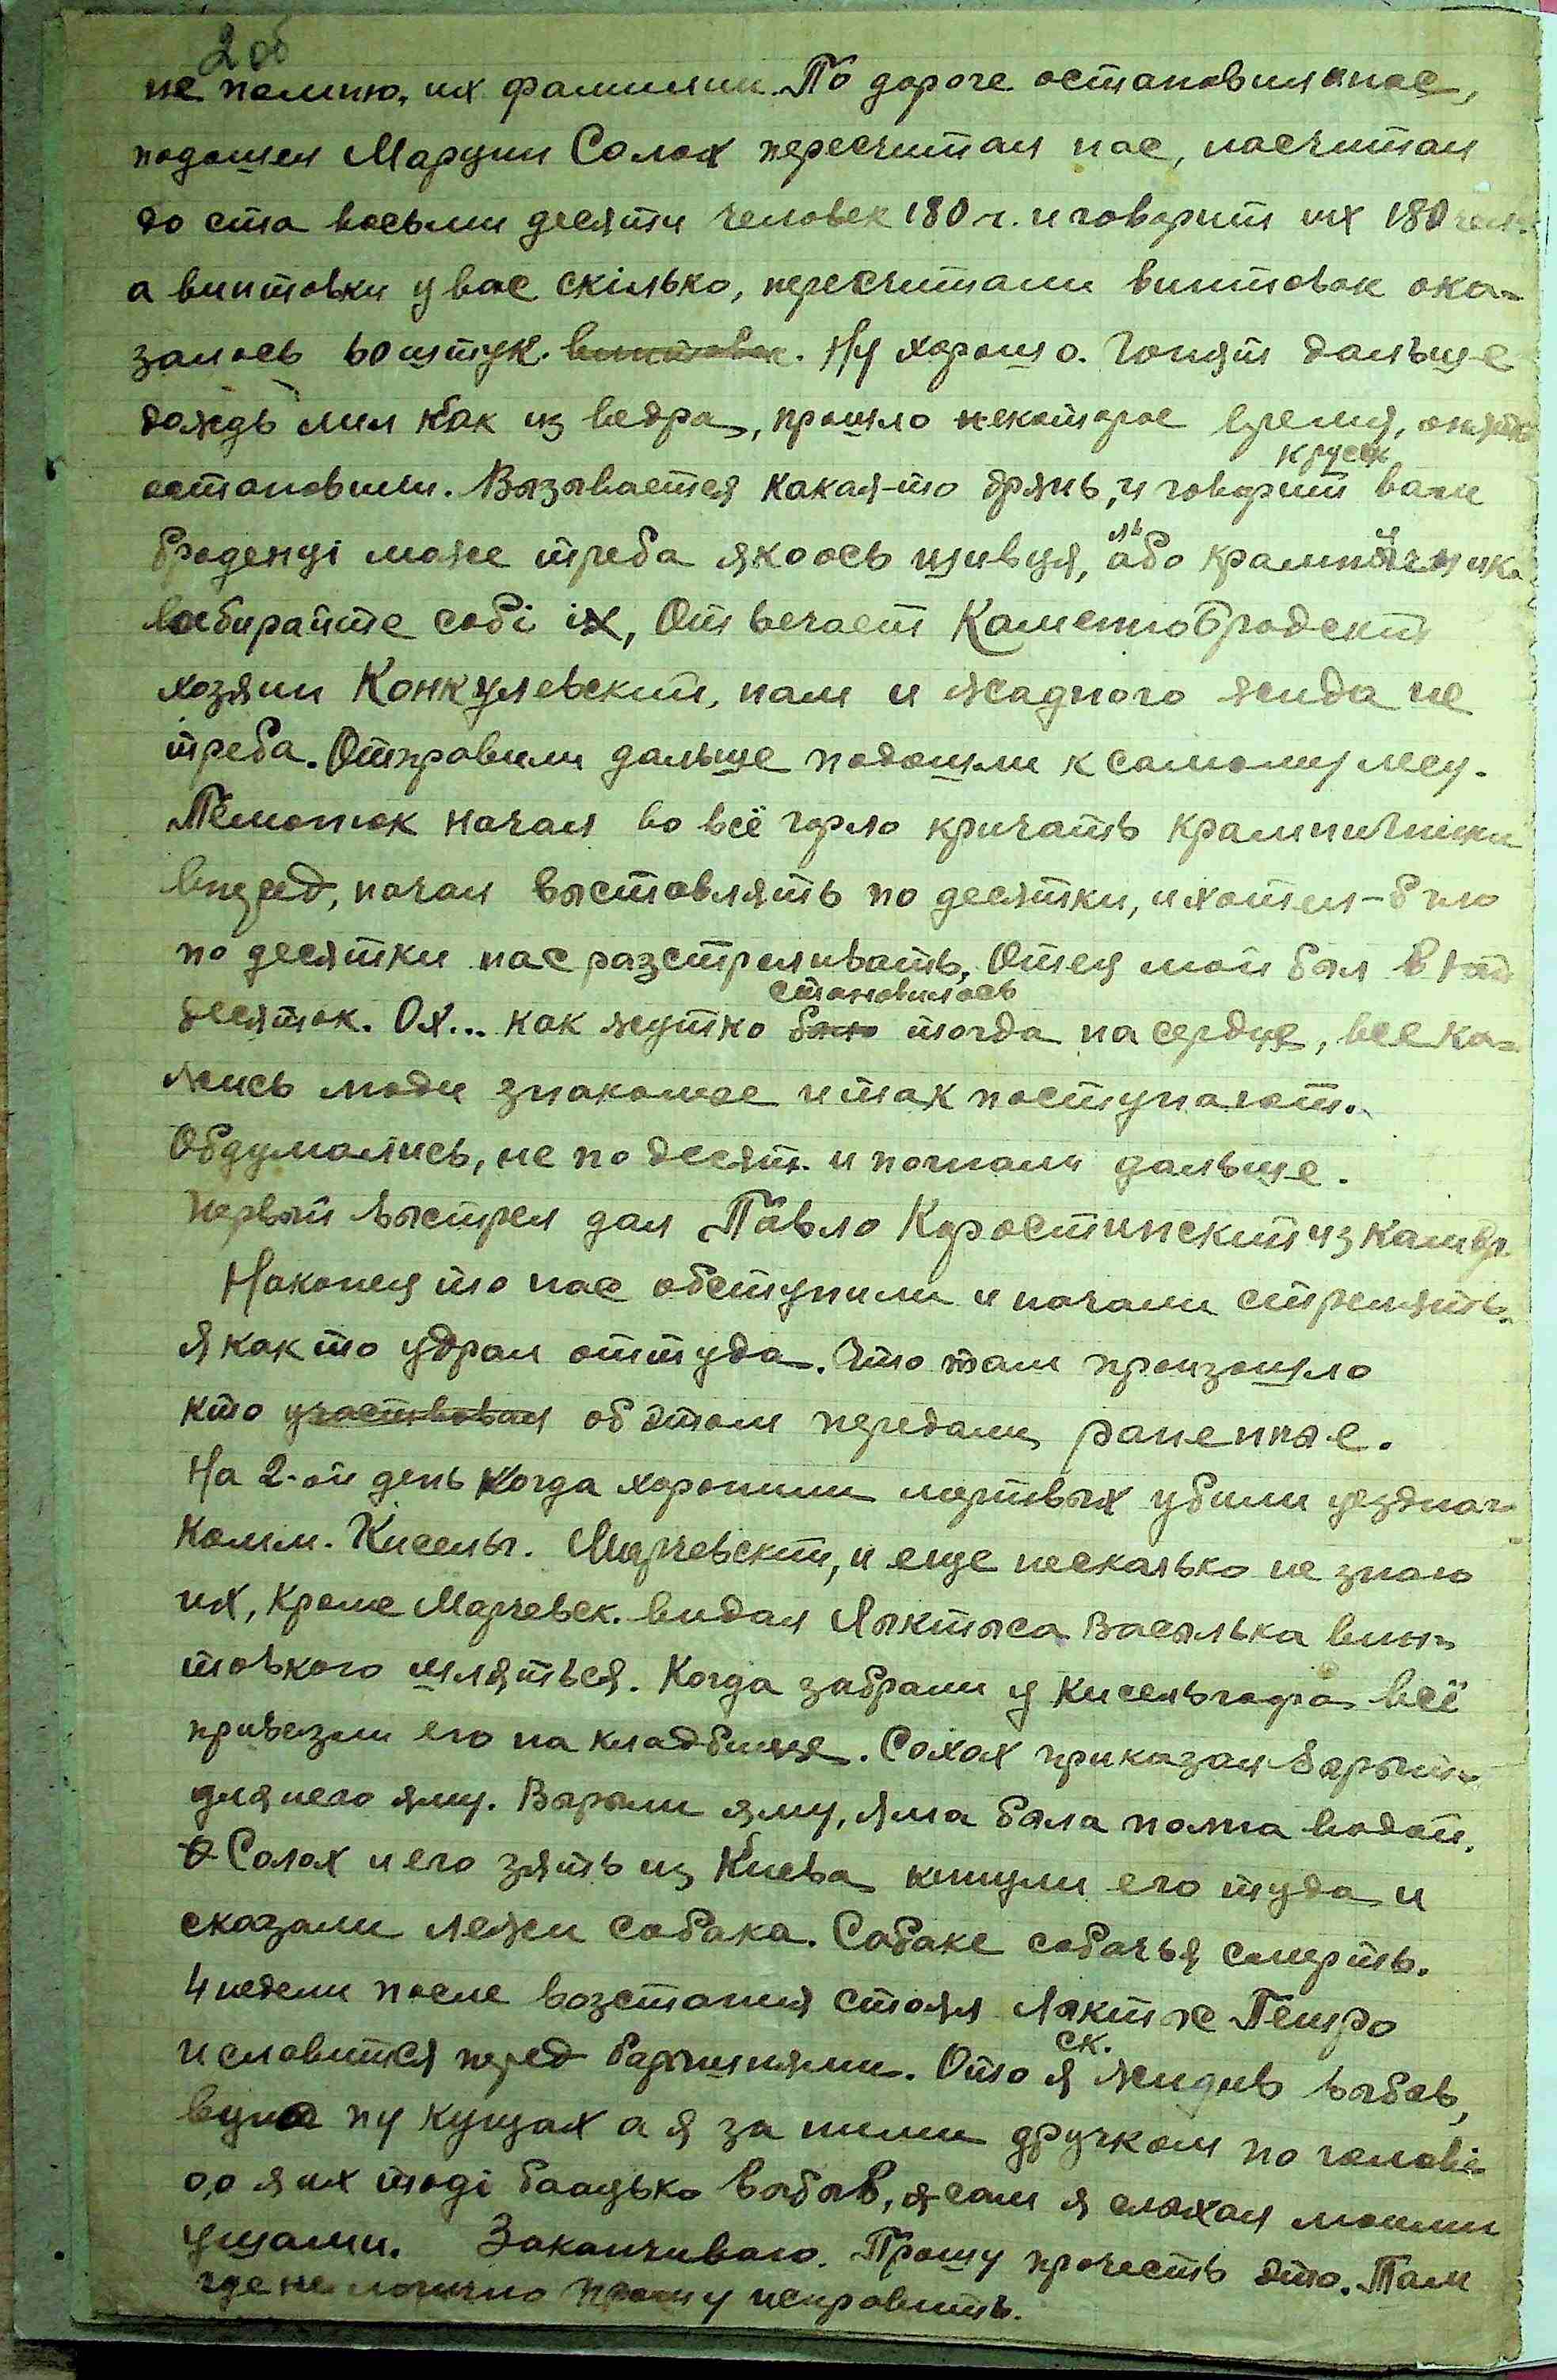 2 об
не помню, их фамилии. По дороге остановил нас,
подошел Марцин Солох пересчитал нас, насчитал
до ста восьми десяти человек 180 ч. и говорит их 180 чел.
а винтовки у вас скілько, пересчитали винтовок ока-
залось 60 штук. винтовок. Ну хорошо. Гонят дальше
дождь лил как из ведра, прошло некоторое время, опять
остановили. Вызывается какая-то дрянь, и говорит вам
броденці може треба якоось шивця, або крамничника
выбирайте собі іх, Отвечает КаменноБродский
хозяин Конкулевский, нам и жадного жида не
треба. Отправили дальше подошли к самому лесу.
начал во всё горло кричать крамничники
вперед, начал выставлять по десятки, и хотел-было
по десятки нас разстреливать, Отец мой был в
становилось
десяток. Ох... как жутко было тогда на сердце, все ка-
жись люди знакомые и так поступают.
Обдумались, не по десят. и погнали дальше.
Первый выстрел дал Павло Коростинский из Кам бр.
Наконец то нас обступили и начали стрелять.
я как то удрал оттуда. Что там произошло
кто участвовал об этом передали раненные.
На 2-ой день когда хоронили мертвых убили уездног.
Комм. Кисельг. Марчевский, и еще несколько не знаю
их, кроме Марчевск. видал Лыктыса Васылька вин-
товкою шляться. Когда забрали у Кисельгофа всё
привезли его на кладбище. Солох приказал вырыть
для него яму. Вырыли яму, яма была полна водой.
Солох и его зять из Киева кинули его туда и
сказали лежи собака. Собаке собачья смерть.
4 недели после возстания стоял Лыктыс Петро
ск.
и славится перед барышнями. Ото я жидив выбыв,
вуны пу кущах а я за ними дручком по голові
о, о я их тоді баацько выбыв, я сам я слыхал моими
ушами. Заканчиваю. Прошу прочесть это. Там
где не логично прошу исправить.